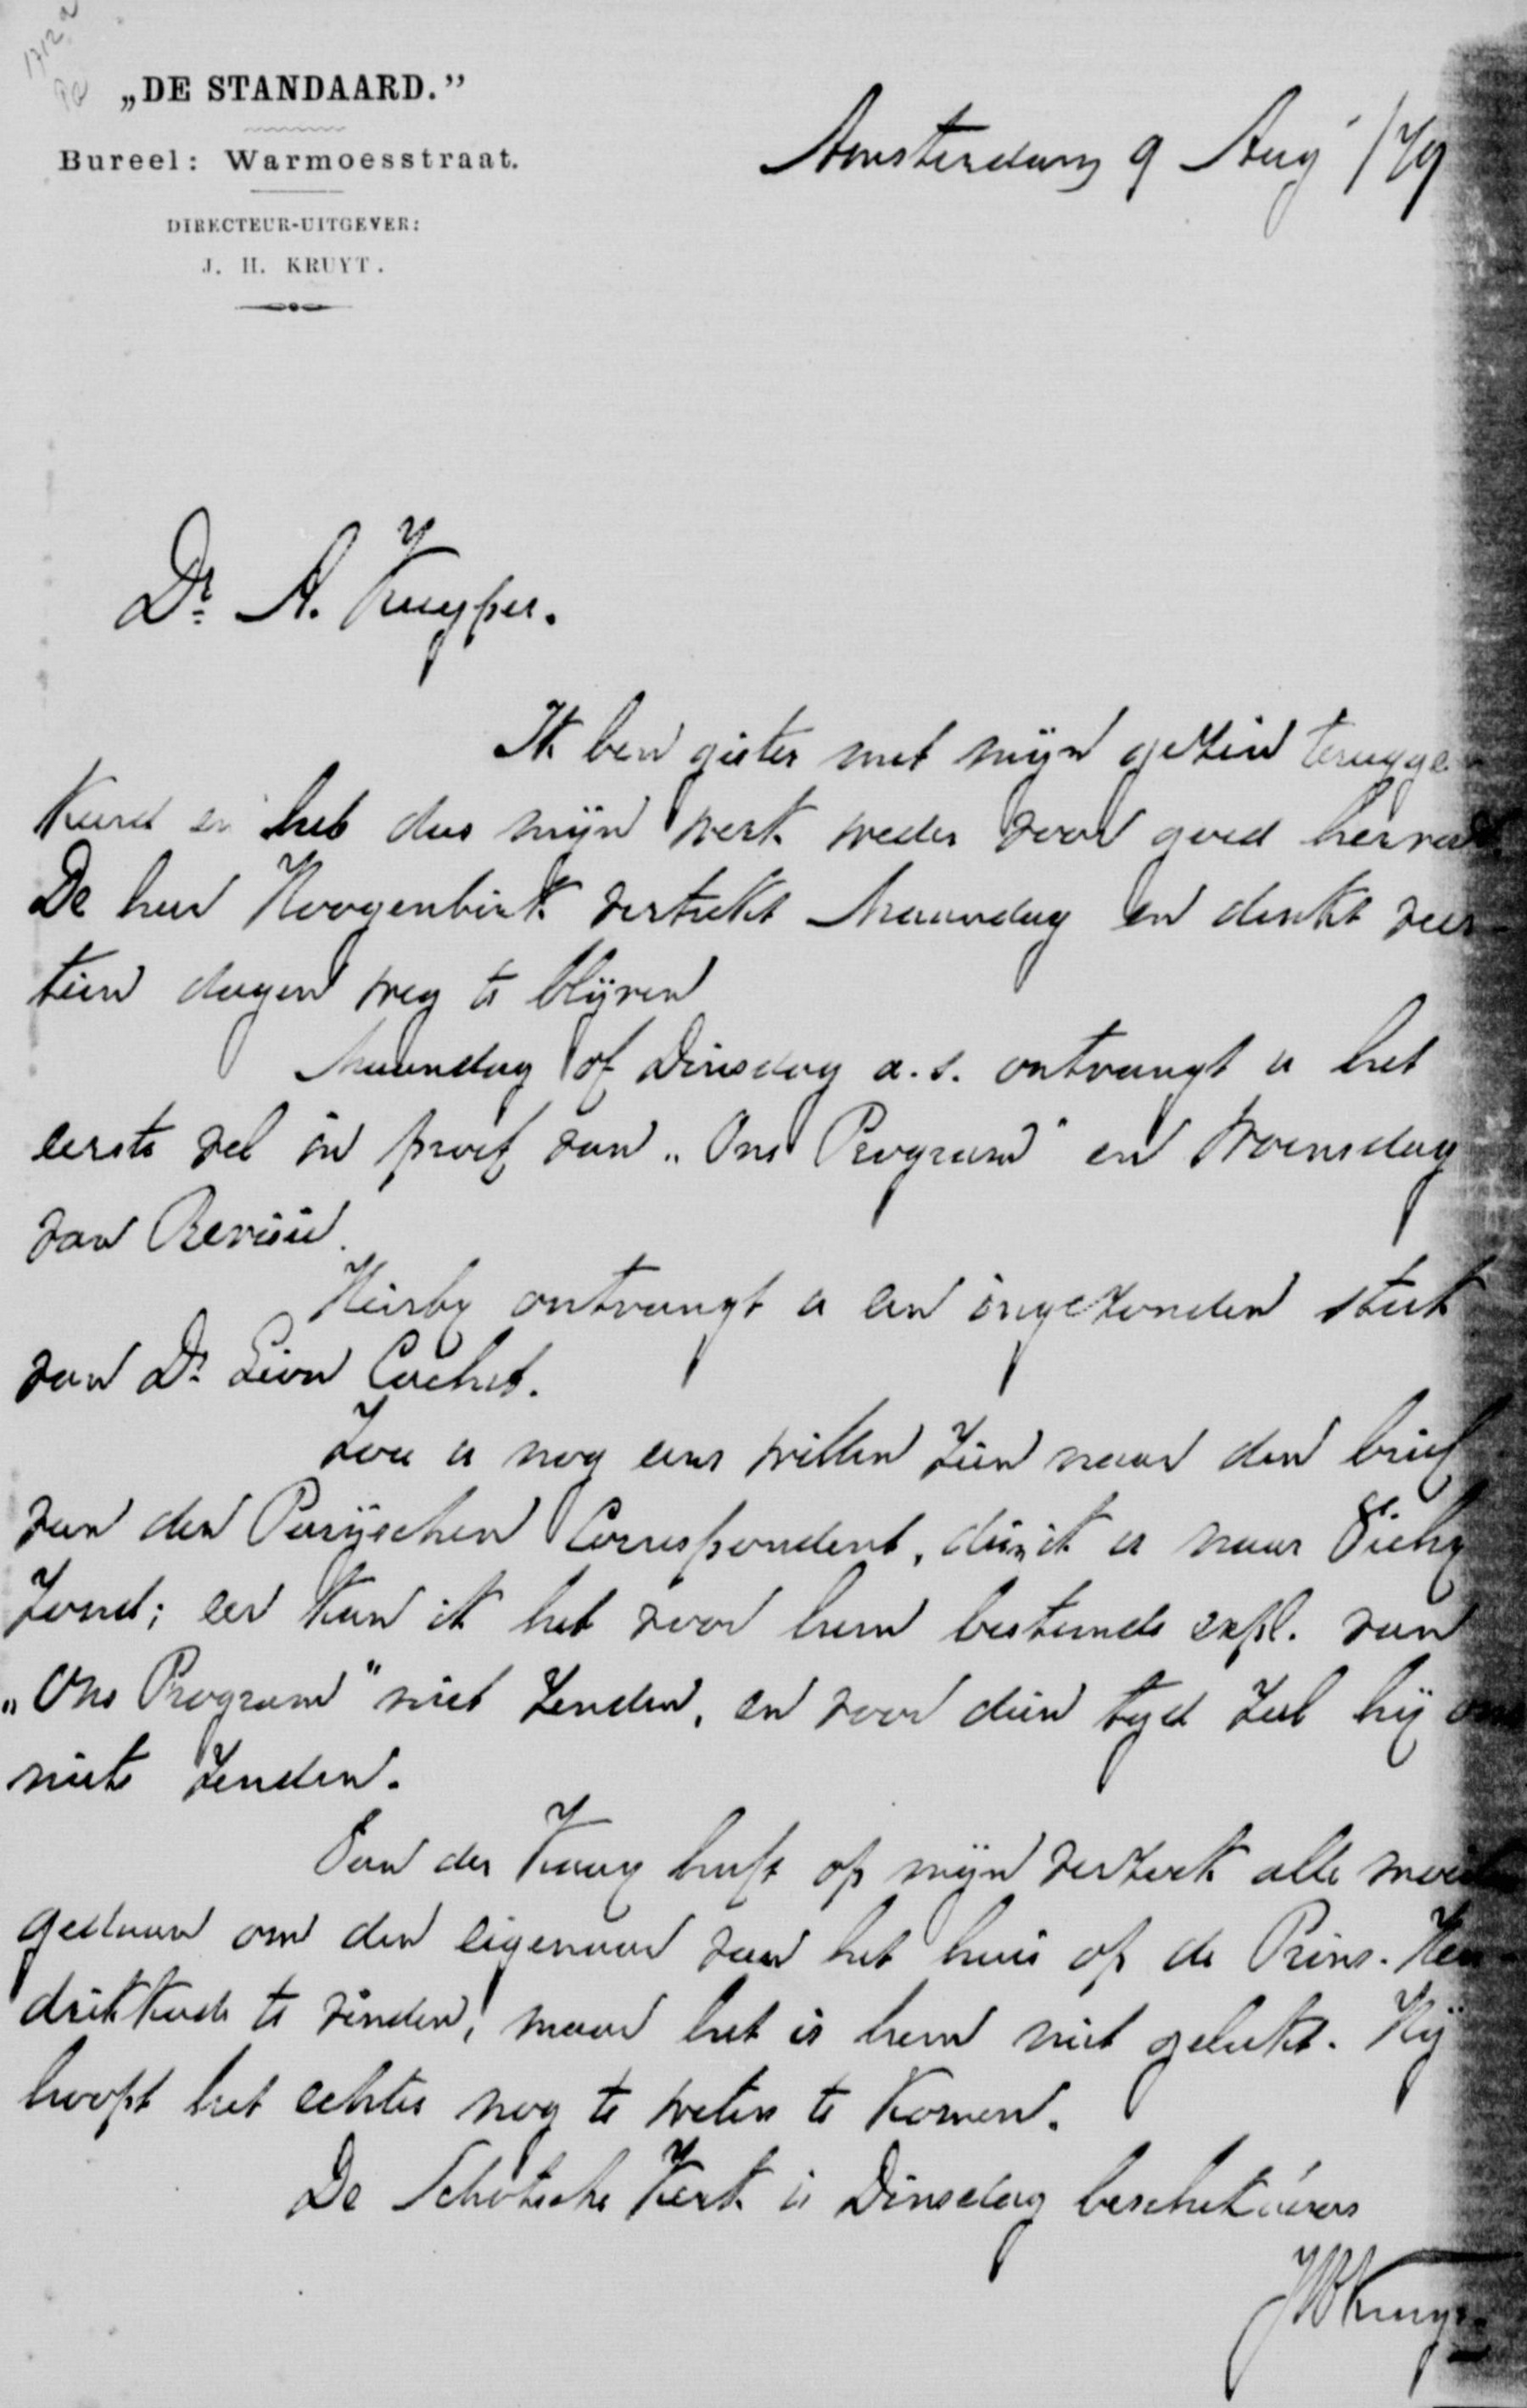 1712a
„DE STANDAARD."
Bureel: Warmoesstraat.
DIRECTEUR-UITGEVER:
J. H. KRUYT.
Amsterdam 9 Aug /79
Dr. A. Kuyper.
Ik ben gister met mijn gezin terugge
keerd en heb dus mijn werk weder voor goed hervat.
De heer Hoogenbirk vertrekt Maandag en denkt veer-
tien dagen weg te blijven
Maandag of Dinsdag a.s. ontvangt u het
eerste vel in proef van „Ons Program" en Woensdag
van Revisie.
Hierby ontvangt u een ingezonden stuk
van Dr. Lion Cachet.
Zou u nog eens willen zien naar den brief
van den Parijschen Correspondent, dien ik u naar Vichy
zond; eer kan ik het voor hem bestemde expl. van
„Ons Program" niet zenden, en voor dien tyd zal hij ons
niets zenden.
Van der Kaay heeft op mijn verzoek alle moeite
gedaan om den eigenaar van het huis op de Prins-Hen-
drikkade te vinden, maar het is hem niet gelukt. Hij
hoopt het echter nog te weten te komen.
De Schotsche Kerk is Dinsdag beschikbaar
JHKruyt